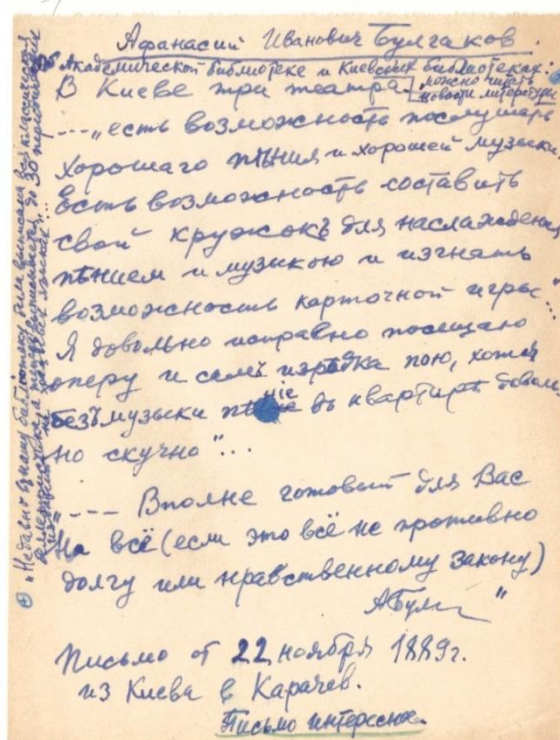 Афанасий Иванович Булгаков.
Об Академической библиотеке и Киевских библиотеках:
В Киеве три театра
можно читать
новости литературы
---- „есть возможность послушать
хорошаго пѣния и хорошей музыки
Есть возможность составить
свой кружокъ для наслаждения
пѣнием и музыкою и изгнать
возможность карточной игры"...
Я довольно исправно посещаю
оперу и самъ изрѣдка пою, хотя
безъ музыки пѣніе въ квартирѣ доволь
но скучно"...
---- Вполне готовый для Вас
На всё (если это всё не противно
долгу или нравственному закону)
АБулг "
Письмо от 22 ноября 1889 г.
из Киева в Карачев.
Письмо интересное.
„Недавно в нашу библиотеку были выписаны все классической